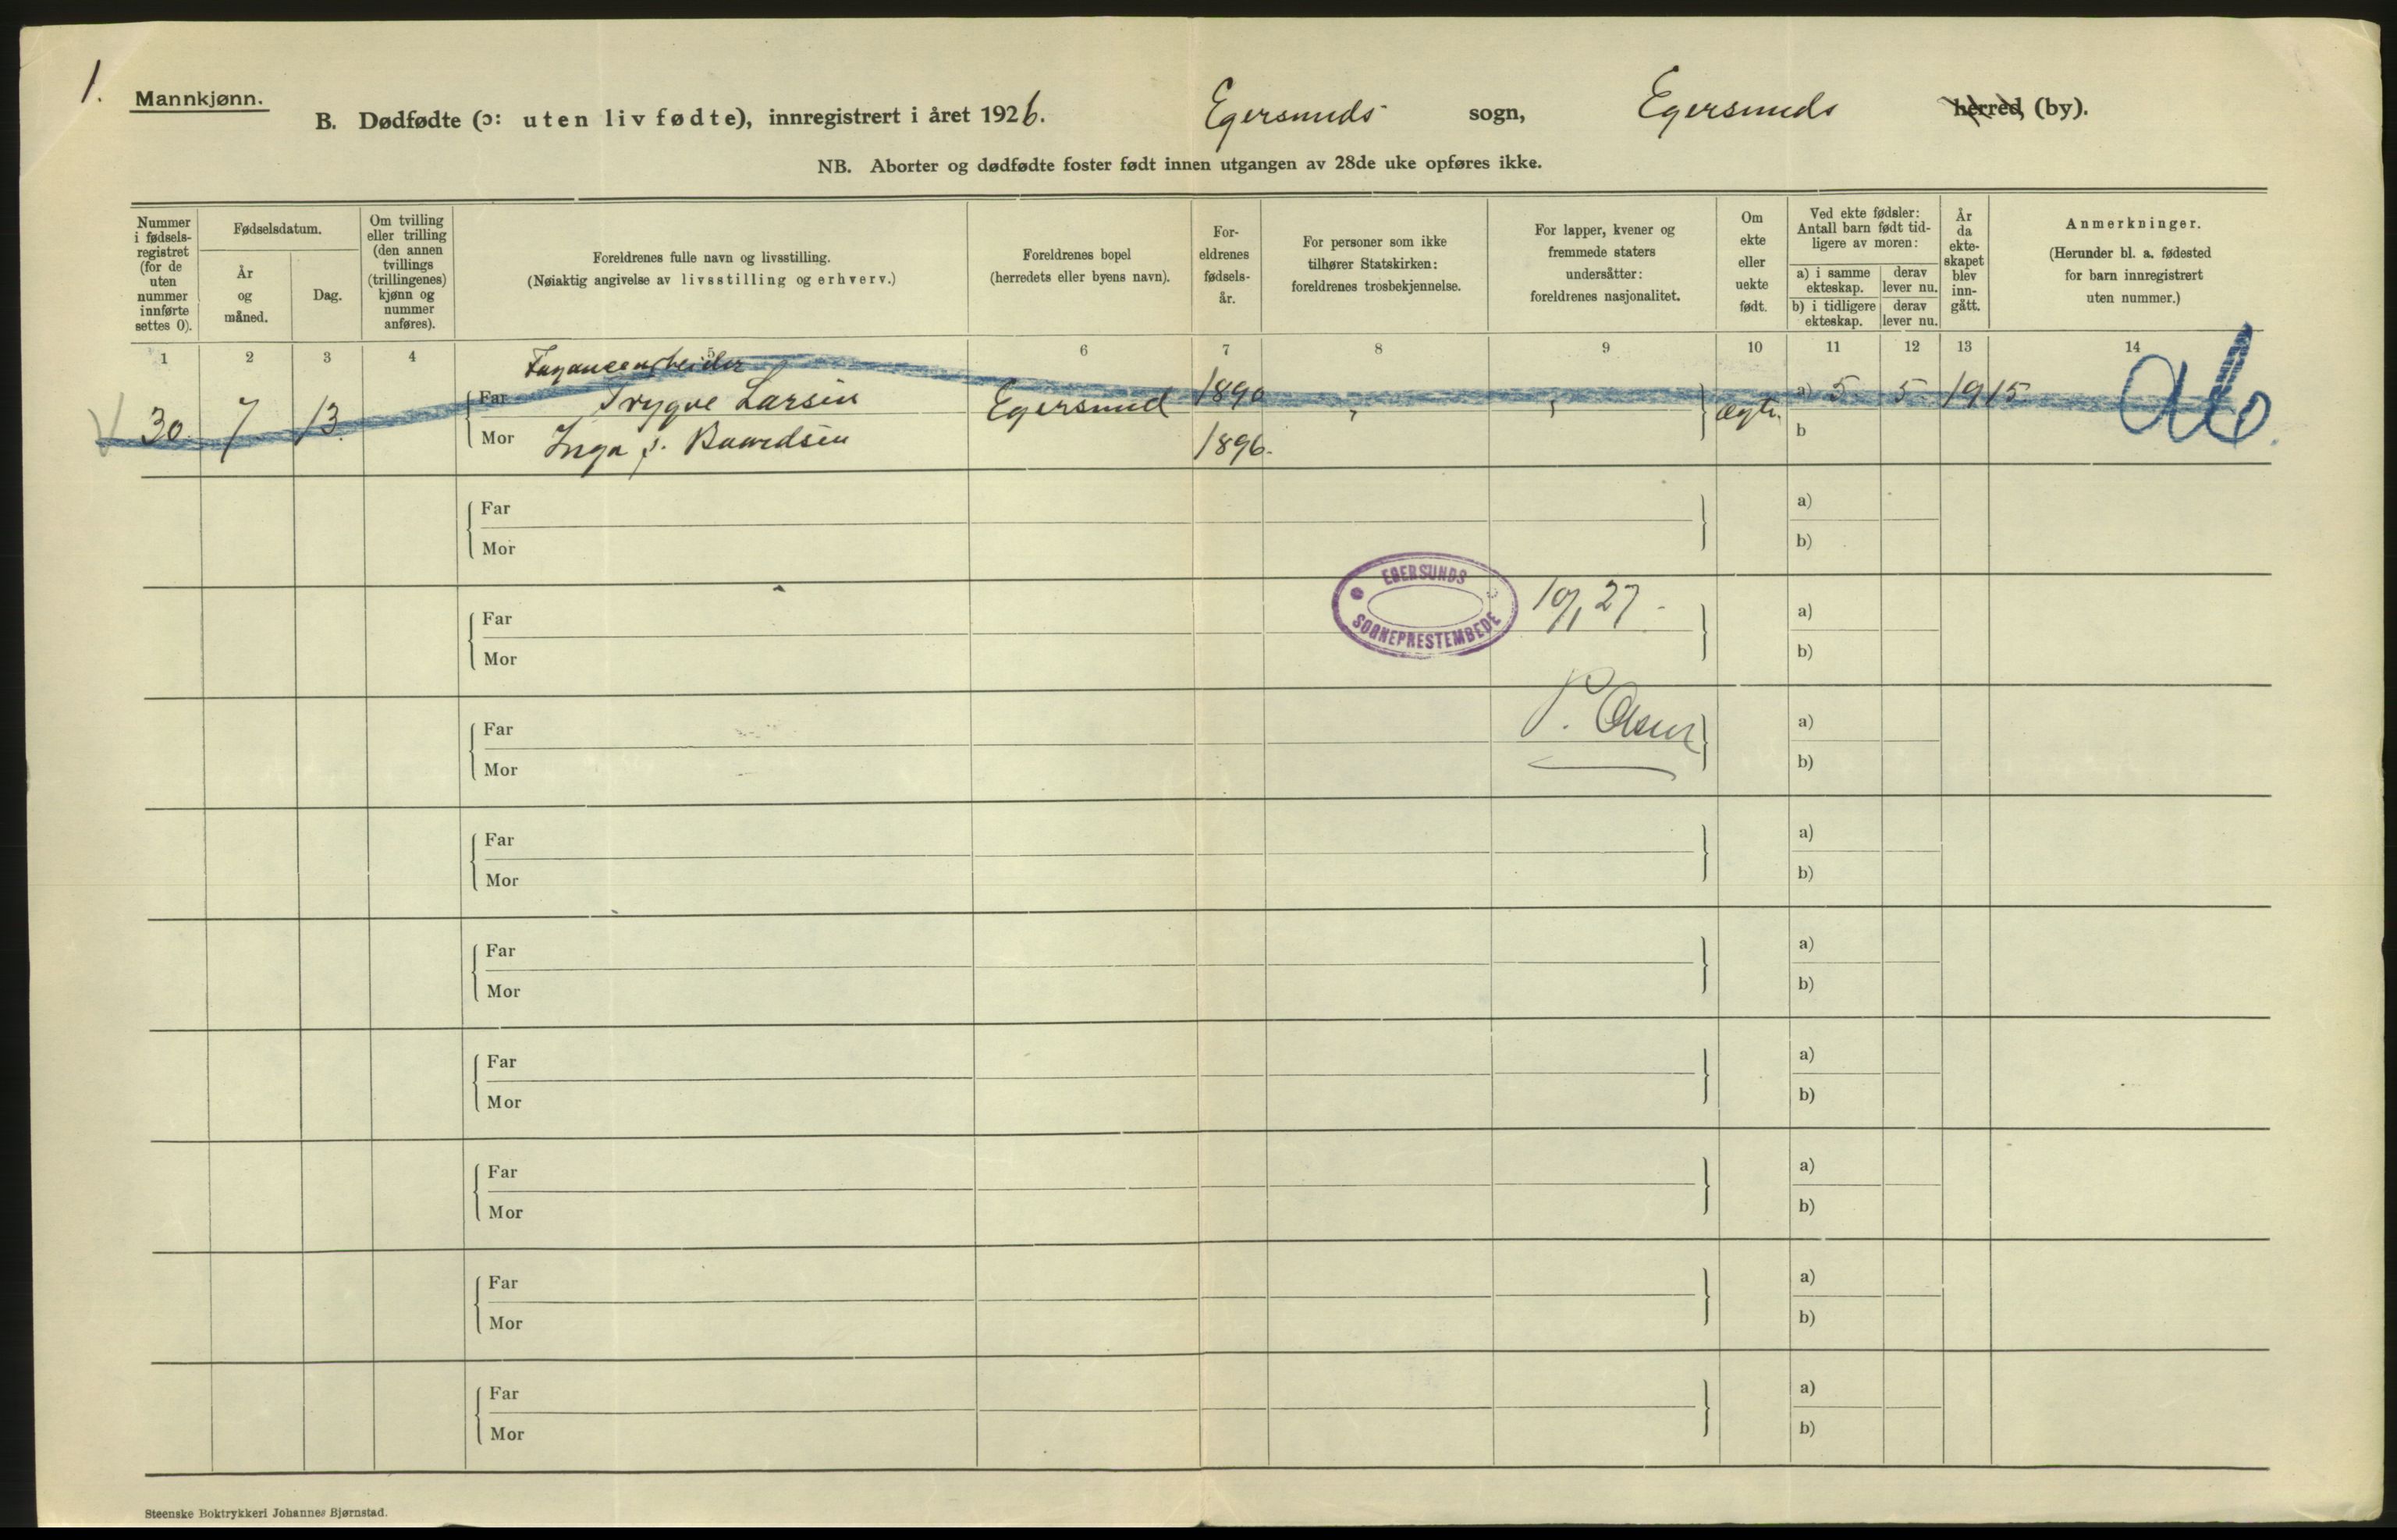 1.
Mannkjønn.
B. Dødfødte (ɔ: uten liv fødte), innregistrert i året 1926. Egersunds sogn, Egersunds herred, (by).
NB. Aborter og dødfødte foster født innen utgangen av 28de uke opføres ikke.
Nummer i fødsels-registret (for de uten nummer innførte settes 0).
Fødselsdatum.
År og måned.
Dag.
Om tvilling eller trilling (den annen tvillings (trillingenes) kjønn og nummer anføres).
Foreldrenes fulle navn og livsstilling.
(Nøiaktig angivelse av livsstilling og erhverv.)
Foreldrenes bopel
(herredets eller byens navn).
For-eldrenes fødsels-år.
For personer som ikke tilhører Statskirken: foreldrenes trosbekjennelse.
For lapper, kvener og fremmede staters undersåtter: foreldrenes nasjonalitet.
Om ekte eller uekte født.
Ved ekte fødsler: Antall barn født tid-ligere av moren:
a) i samme ekteskap.
derav lever nu.
b) i tidligere ekteskap.
derav lever nu.
År da ekte-skapet blev inn-gått.
Anmerkninger.
(Herunder bl. a. fødested for barn innregistrert uten nummer.)
1 2 3 4 5 6 7 8 9 10 11 12 13 14
Fayancearbeider
30. 7 13. Far Trygve Larsen Egersund 1890 " " ægte a) 5 5 1915
Mor Inga f. Baardsen 1896. b
Far a)
Mor b)
EGERSUNDS SOGNEPRESTEMBEDE
10/1 27.
Far a)
Mor b)
P. Olsen
Far a)
Mor b)
Far a)
Mor b)
Far a)
Mor b)
Far a)
Mor b)
Far a)
Mor b)
Far a)
Mor b)
Far a)
Mor b)
Steenske Boktrykkeri Johannes Bjørnstad.